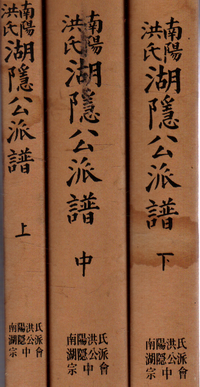 南陽
洪氏
湖隱公派譜
上
南陽洪氏
湖隱公派
宗中會
南陽
洪氏
湖隱公派譜
中
南陽洪氏
湖隱公派
宗中會
南陽
洪氏
湖隱公派譜
下
南陽洪氏
湖隱公派
宗中會